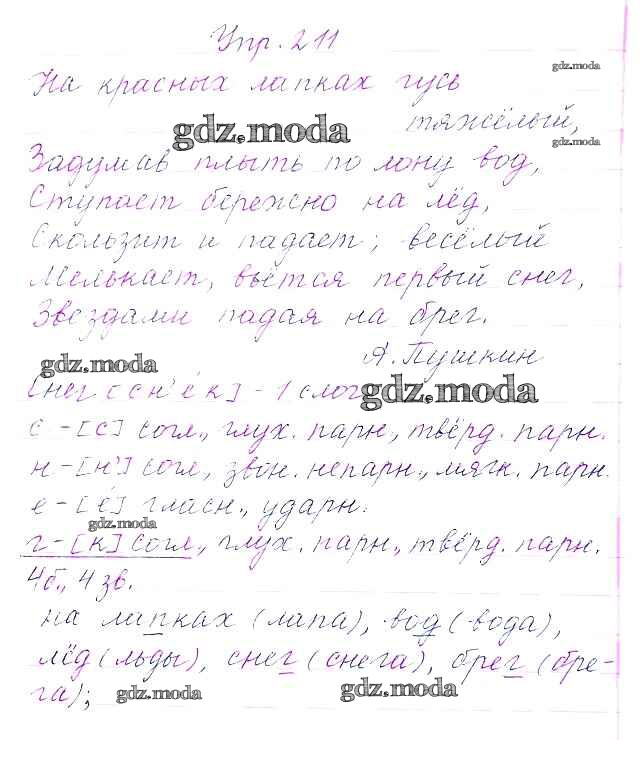 Упр. 211
gdz.moda
На красных лапках гусь
тяжёлый,
gdz.moda
gdz.moda
Задумав плыть по лону вод,
Ступает бережно на лёд,
Скользит и падает; весёлый
Мелькает, вьётся первый снег,
Звездами падая на брег.
А. Пушкин
gdz.moda
Снег [сн'е́к] - 1 слог
gdz.moda
с - [с] согл., глух. парн., твёрд. парн.
н - [н'] согл., звон. непарн., мягк. парн.
е - [е́] гласн., ударн.
gdz.moda
г - [к] согл., глух. парн., твёрд. парн.
4б., 4 зв.
на лапках (лапа), вод (вода),
лёд (льды), снег (снега), брег (бре-
га);
gdz.moda
gdz.moda